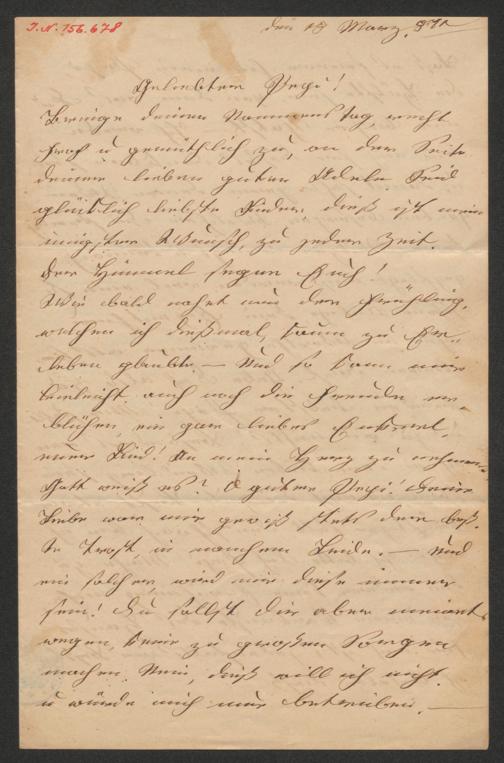 I.N. 156.678
den 18 März 871
Geliebter Pepi!
Bringe deinen Nammenstag recht
froh u gemüthlich zu, an der Seite
deiner lieben guten Adele. Seid
glücklich liebste Kinder, dieß ist mein
innigster Wunsch, zu jeder Zeit.
Der Himmel segne Euch!
Wie bald nahet nun der Frühling,
welchen ich dießmal, kaum zu Er-
leben glaubte. — Und so kann mir
vielleicht auch noch die Freude er-
blühen, ein gar liebes Enkerl,
euer Kind! An mein Herz zu nehmen
Gott weiß es? O guter Pepi! Deine
Liebe war mir gewiß stets der beß-
te Trost, in manchem Leide. — Und
ein solcher, wird mir diese immer
sein! Du sollst dir aber meinet-
wegen, keine zu großen Sorgen
machen. Nein, dieß will ich nicht
u würde mich nur betrüben. —